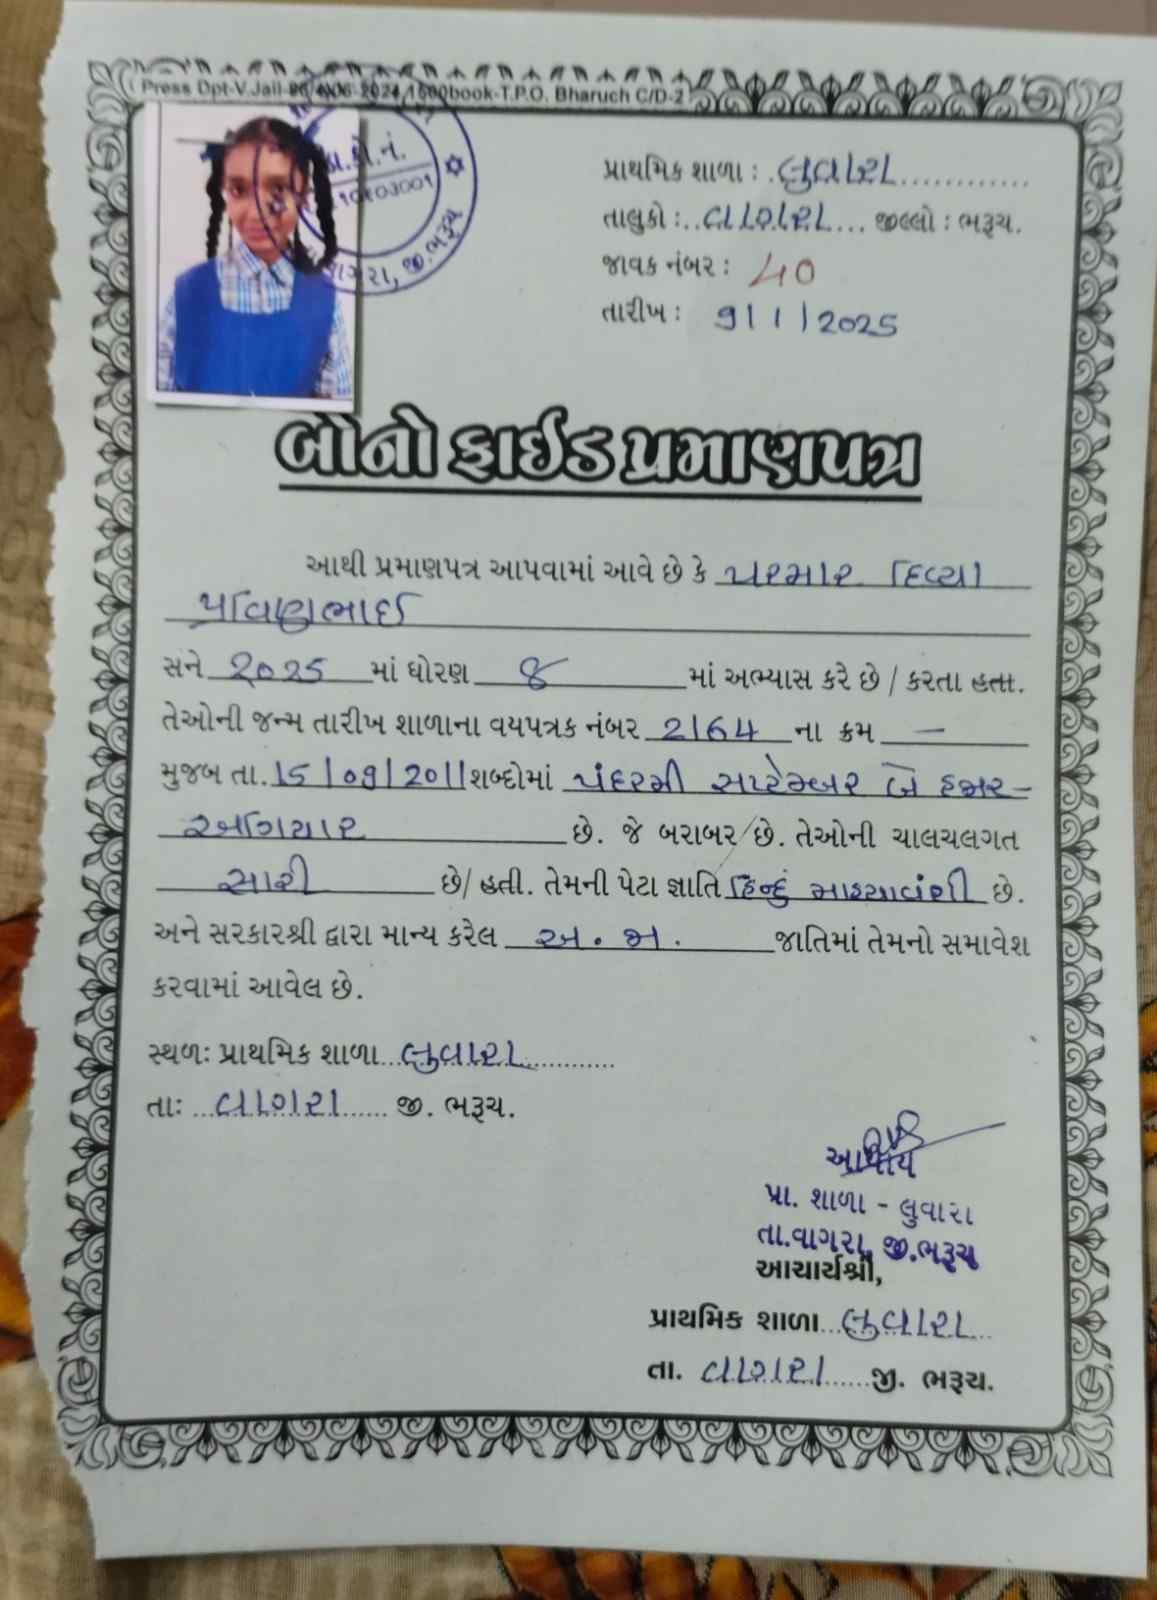 Press Dpt-V.Jail-26/4/06-2024/1500book-T.P.O. Bharuch C/D-2
ડા.કો.નં.
વાગરા, જી.ભરૂચ
પ્રાથમિક શાળા : લુવારા
તાલુકો : વાગરા જીલ્લો : ભરૂચ.
જાવક નંબર : 40
તારીખ : 9/1/2025
બોનોફાઈડ પ્રમાણપત્ર
આથી પ્રમાણપત્ર આપવામાં આવે છે કે પરમાર દિવ્યા
પ્રવિણભાઈ
સને 2025 માં ધોરણ ૪ માં અભ્યાસ કરે છે / કરતા હતા.
તેઓની જન્મ તારીખ શાળાના વયપત્રક નંબર 2164 ના ક્રમ —
મુજબ તા. 15/09/2011 શબ્દોમાં પંદરમી સપ્ટેમ્બર બે હજાર-
અગિયાર છે. જે બરાબર છે. તેઓની ચાલચલગત
સારી છે/ હતી. તેમની પેટા જ્ઞાતિ હિન્દુ માહ્યાવંશી છે.
અને સરકારશ્રી દ્વારા માન્ય કરેલ અ. જા. જાતિમાં તેમનો સમાવેશ
કરવામાં આવેલ છે.
સ્થળઃ પ્રાથમિક શાળા લુવારા
તાઃ વાગરા જી. ભરૂચ.
આચાર્ય
પ્રા. શાળા - લુવારા
તા.વાગરા, જી.ભરૂચ
આચાર્યશ્રી,
પ્રાથમિક શાળા લુવારા
તા. વાગરા જી. ભરૂચ.